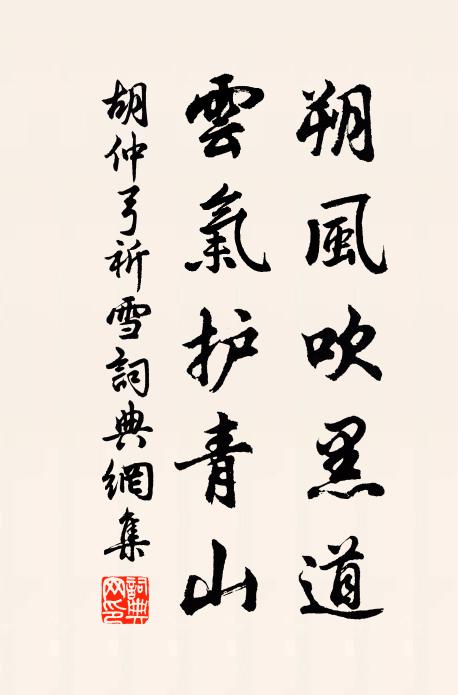 朔風吹黑道
雲氣护青山
胡仲弓祈雪詞典網集
詞典網印